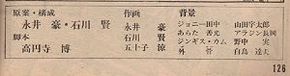 原案・構成
永井豪・石川賢
脚本
高円寺博
作画
永井豪
石川賢
五十子勝
背景
ジョニー田中
あらた善元
ジンギス・カム
外菅
山田宇太郎
アラジン長岡
野中実
白鳥達夫
126